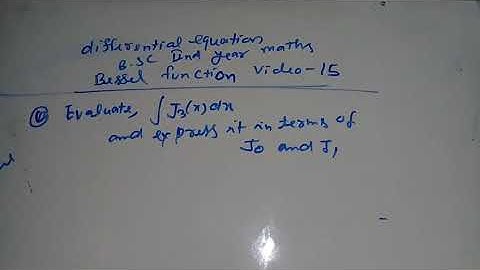 differential equation
B.SC IInd year maths
Bessel function video-15
Evaluate, ∫ J₃(x) dx
and express it in terms of
J₀ and J₁